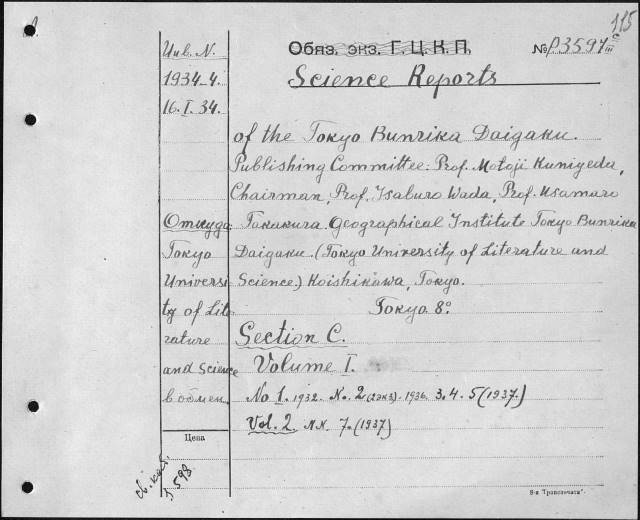 115
Обяз. экз. Г. Ц. К. П.
№ P3597 c/III
Инв. N.
1934-4.
16.I.34.
Science Reports
of the Tokyo Bunrika Daigaku.
Publishing Committee: Prof. Motoji Kuniyeda,
Chairman, Prof. Isaburo Wada, Prof. Usamaro
Takakura. Geographical Institute Tokyo Bunrika
Daigaku. (Tokyo University of Literature and
Science.) Koishikawa, Tokyo.
Tokyo 8º
Откуда:
Tokyo
Universi
ty of Lite
rature
and Science
в обмен.
Section C.
Volume I.
No 1. 1932. N. 2 (2экз). 1936. 3. 4. 5 (1937.)
Vol. 2. NN. 7. (1937)
Цена
св. кат.
598
8-я Транспечать